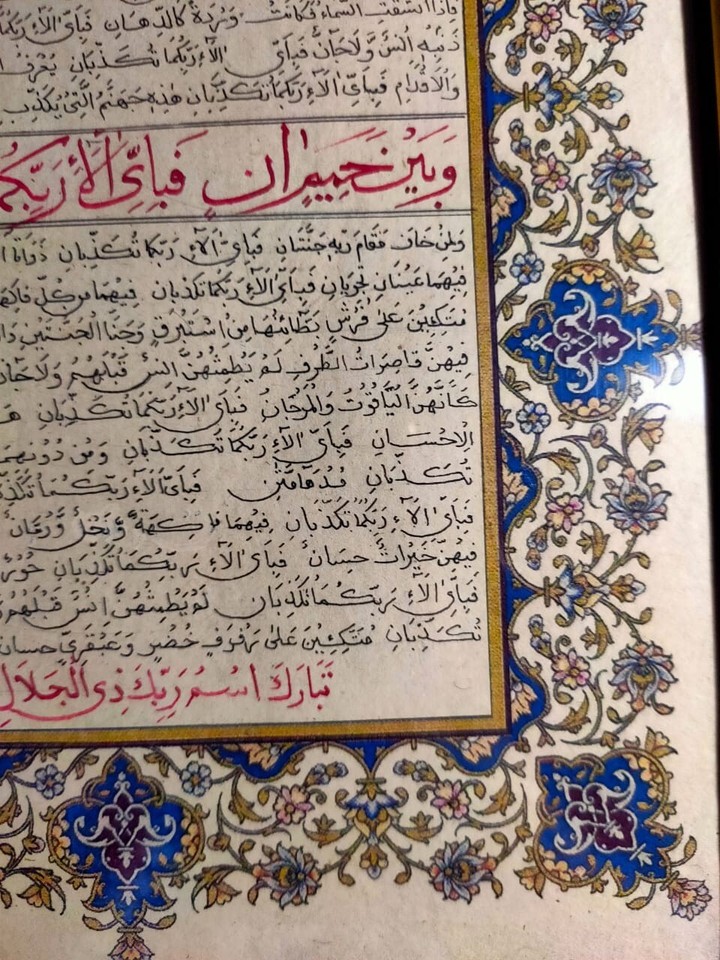 فاذا انشقت السماء فكانت وردة كالدهان فباي الآء ربكما
ذنبه انس ولا جان فباي الآء ربكما تكذبان يعرف
والاقدام فباي الآء ربكما تكذبان هذه جهنم التي يكذب
وَبَيْنَ حَمِيمٍ اٰنٍ فَبِاَيِّ اٰلَآءِ رَبِّكُمَا
ولمن خاف مقام ربه جنتان فباي الآء ربكما تكذبان ذواتا
فيهما عينان تجريان فباي الآء ربكما تكذبان فيهما من كل فاكهة
متكئين على فرش بطائنها من استبرق وجنا الجنتين دان
فيهن قاصرات الطرف لم يطمثهن انس قبلهم ولا جان
كانهن الياقوت والمرجان فباي الآء ربكما تكذبان
الاحسان فباي الآء ربكما تكذبان ومن دونهما
تكذبان مدهامتن فباي الآء ربكما تكذبان
فباي الآء ربكما تكذبان فيهما فاكهة ونخل ورمان
فيهن خيرات حسان فباي الآء ربكما تكذبان حور
فباي الآء ربكما تكذبان لم يطمثهن انس قبلهم
تكذبان متكئين على رفرف خضر وعبقري حسان
تَبَارَكَ اسْمُ رَبِّكَ ذِي الْجَلَالِ